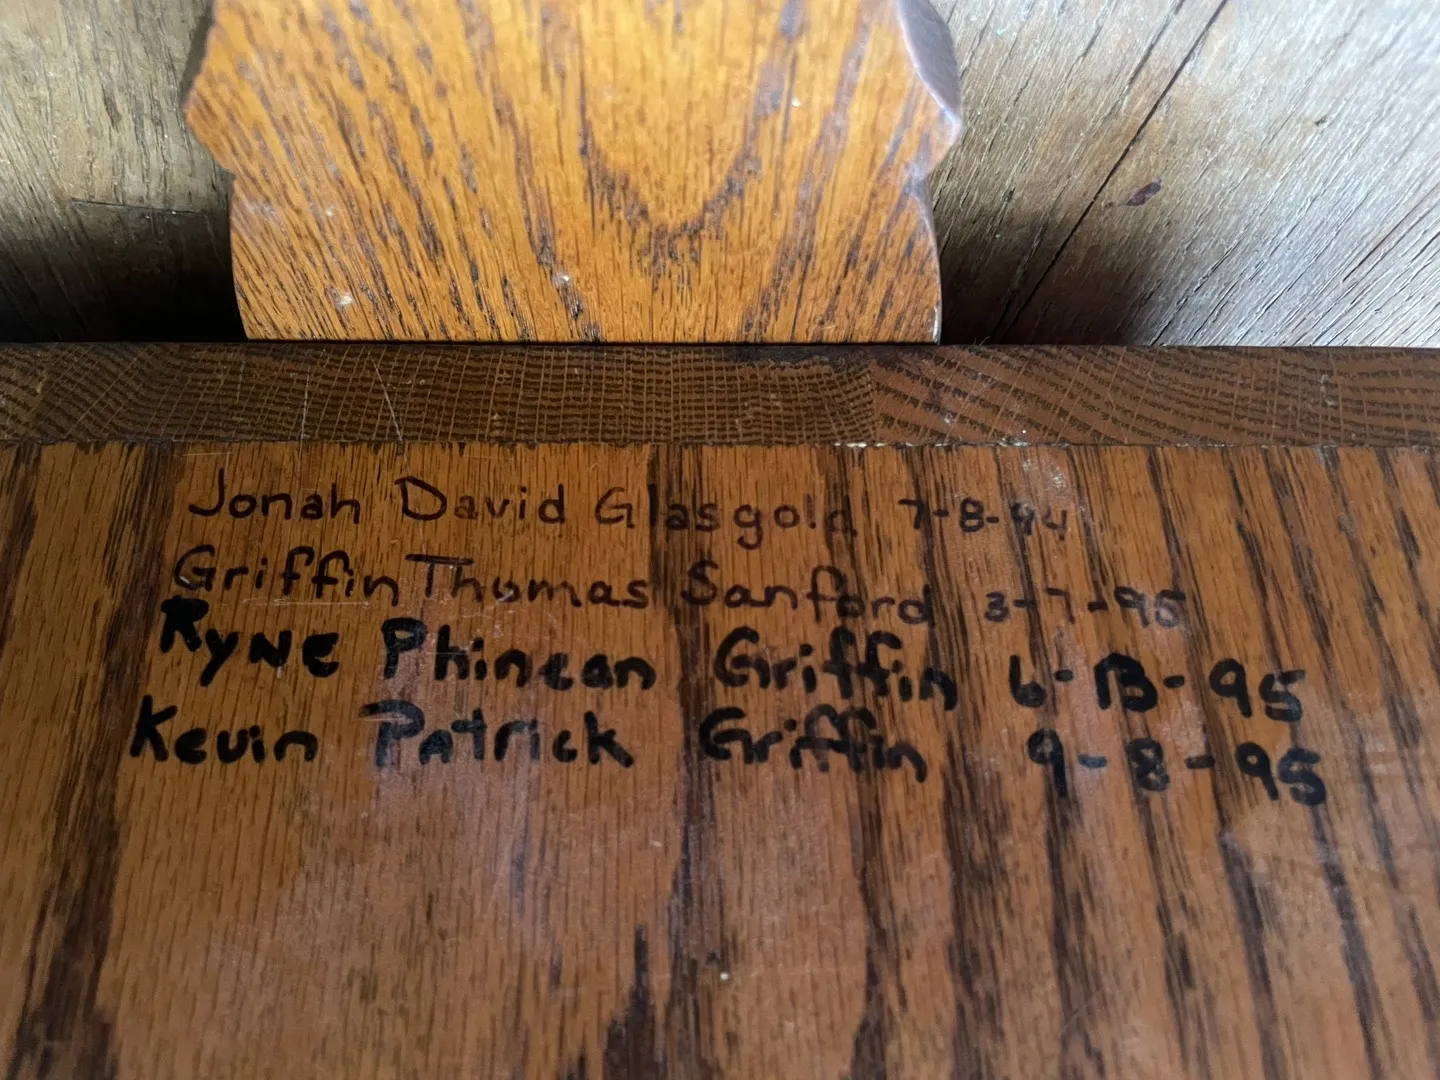 Jonah David Glasgold 7-8-94
Griffin Thomas Sanford 3-7-95
Ryne Phinean Griffin 6-13-95
Kevin Patrick Griffin 9-8-95